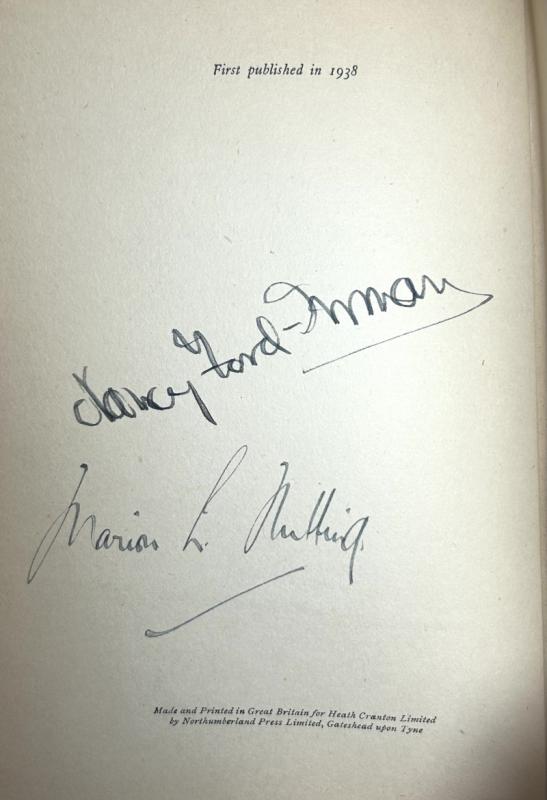 First published in 1938
Nancy Ford-Inman
Marion L. Nutting.
Made and Printed in Great Britain for Heath Cranton Limited
by Northumberland Press Limited, Gateshead upon Tyne